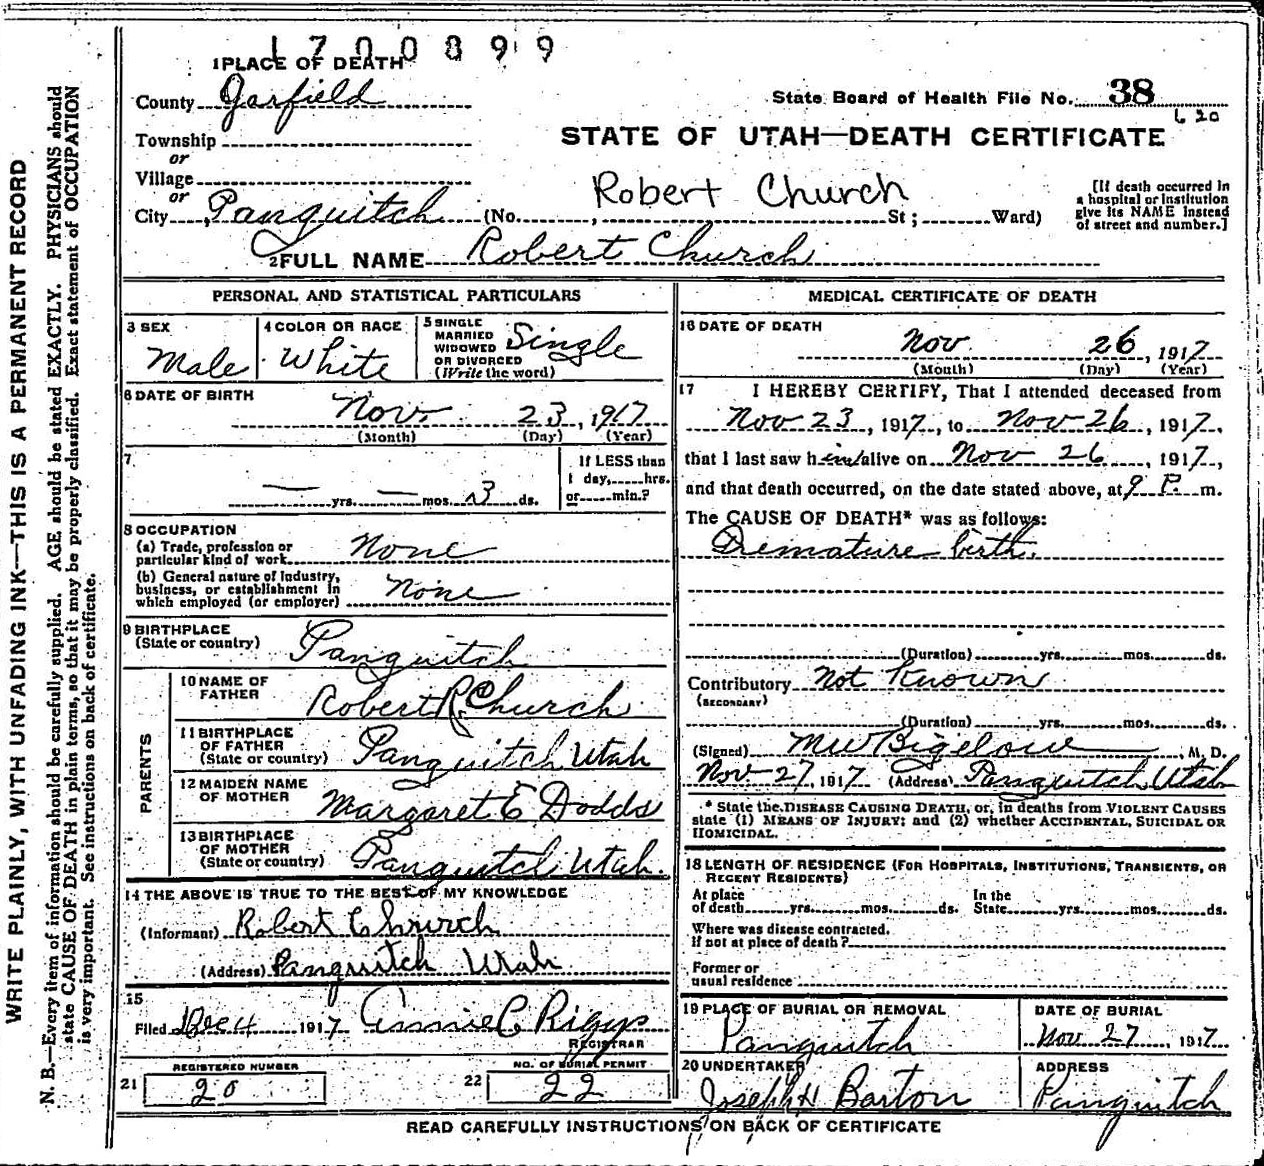 1700899
1 PLACE OF DEATH
County Garfield
State Board of Health File No. 38
620
Township
or
STATE OF UTAH—DEATH CERTIFICATE
Village
or
Robert Church
[If death occurred in
a hospital or institution
give its NAME instead
of street and number.]
City Panguitch (No. , St ; Ward)
2 FULL NAME Robert Church
PERSONAL AND STATISTICAL PARTICULARS
3 SEX
Male
4 COLOR OR RACE
White
5 SINGLE
MARRIED
WIDOWED
OR DIVORCED
(Write the word)
Single
6 DATE OF BIRTH
Nov. 23, 1917
(Month) (Day) (Year)
7
— yrs. — mos. 3 ds.
If LESS than
1 day, hrs.
or min.?
8 OCCUPATION
(a) Trade, profession or
particular kind of work None
(b) General nature of industry,
business, or establishment in
which employed (or employer) None
9 BIRTHPLACE
(State or country) Panguitch
PARENTS
10 NAME OF
FATHER Robert R. Church
11 BIRTHPLACE
OF FATHER
(State or country) Panguitch Utah
12 MAIDEN NAME
OF MOTHER Margaret E Dodds
13 BIRTHPLACE
OF MOTHER
(State or country) Panguitch Utah.
14 THE ABOVE IS TRUE TO THE BEST OF MY KNOWLEDGE
(Informant) Robert Church
(Address) Panguitch Utah
15
Filed Dec 4 1917 Annie C Riggs
REGISTRAR
21 REGISTERED NUMBER
20
22 NO. OF BURIAL PERMIT
22
MEDICAL CERTIFICATE OF DEATH
16 DATE OF DEATH
Nov. 26, 1917
(Month) (Day) (Year)
17 I HEREBY CERTIFY, That I attended deceased from
Nov 23, 1917, to Nov 26, 1917,
that I last saw him alive on Nov 26, 1917,
and that death occurred, on the date stated above, at 9 P. m.
The CAUSE OF DEATH* was as follows:
Premature birth.
(Duration) yrs. mos. ds.
Contributory Not Known
(SECONDARY)
(Duration) yrs. mos. ds.
(Signed) MW Bigelow M. D.
Nov 27, 1917 (Address) Panguitch Utah
* State the DISEASE CAUSING DEATH, or, in deaths from VIOLENT CAUSES
state (1) MEANS OF INJURY; and (2) whether ACCIDENTAL, SUICIDAL OR
HOMICIDAL.
18 LENGTH OF RESIDENCE (FOR HOSPITALS, INSTITUTIONS, TRANSIENTS, OR
RECENT RESIDENTS)
At place
of death yrs. mos. ds.
In the
State yrs. mos. ds.
Where was disease contracted,
if not at place of death?
Former or
usual residence
19 PLACE OF BURIAL OR REMOVAL
Panguitch
DATE OF BURIAL
Nov. 27, 1917
20 UNDERTAKER
Joseph H Barton
ADDRESS
Panguitch
READ CAREFULLY INSTRUCTIONS ON BACK OF CERTIFICATE
WRITE PLAINLY, WITH UNFADING INK—THIS IS A PERMANENT RECORD
N. B.—Every item of information should be carefully supplied. AGE should be stated EXACTLY. PHYSICIANS should
state CAUSE OF DEATH in plain terms, so that it may be properly classified. Exact statement of OCCUPATION
is very important. See instructions on back of certificate.